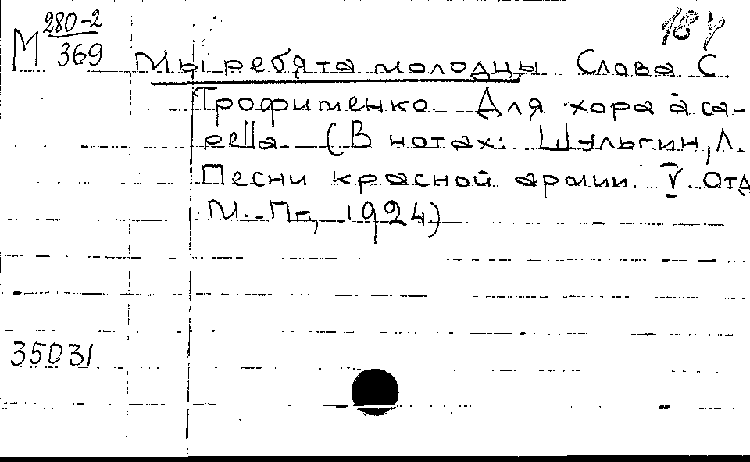 М 280-2
369
184
Мы ребята молодцы Слова С
Трофименко Для хора а са-
pella. (В нотах: Шульгин, Л.
Песни красной армии. V. Отд
М.-П-, 1924)
35031